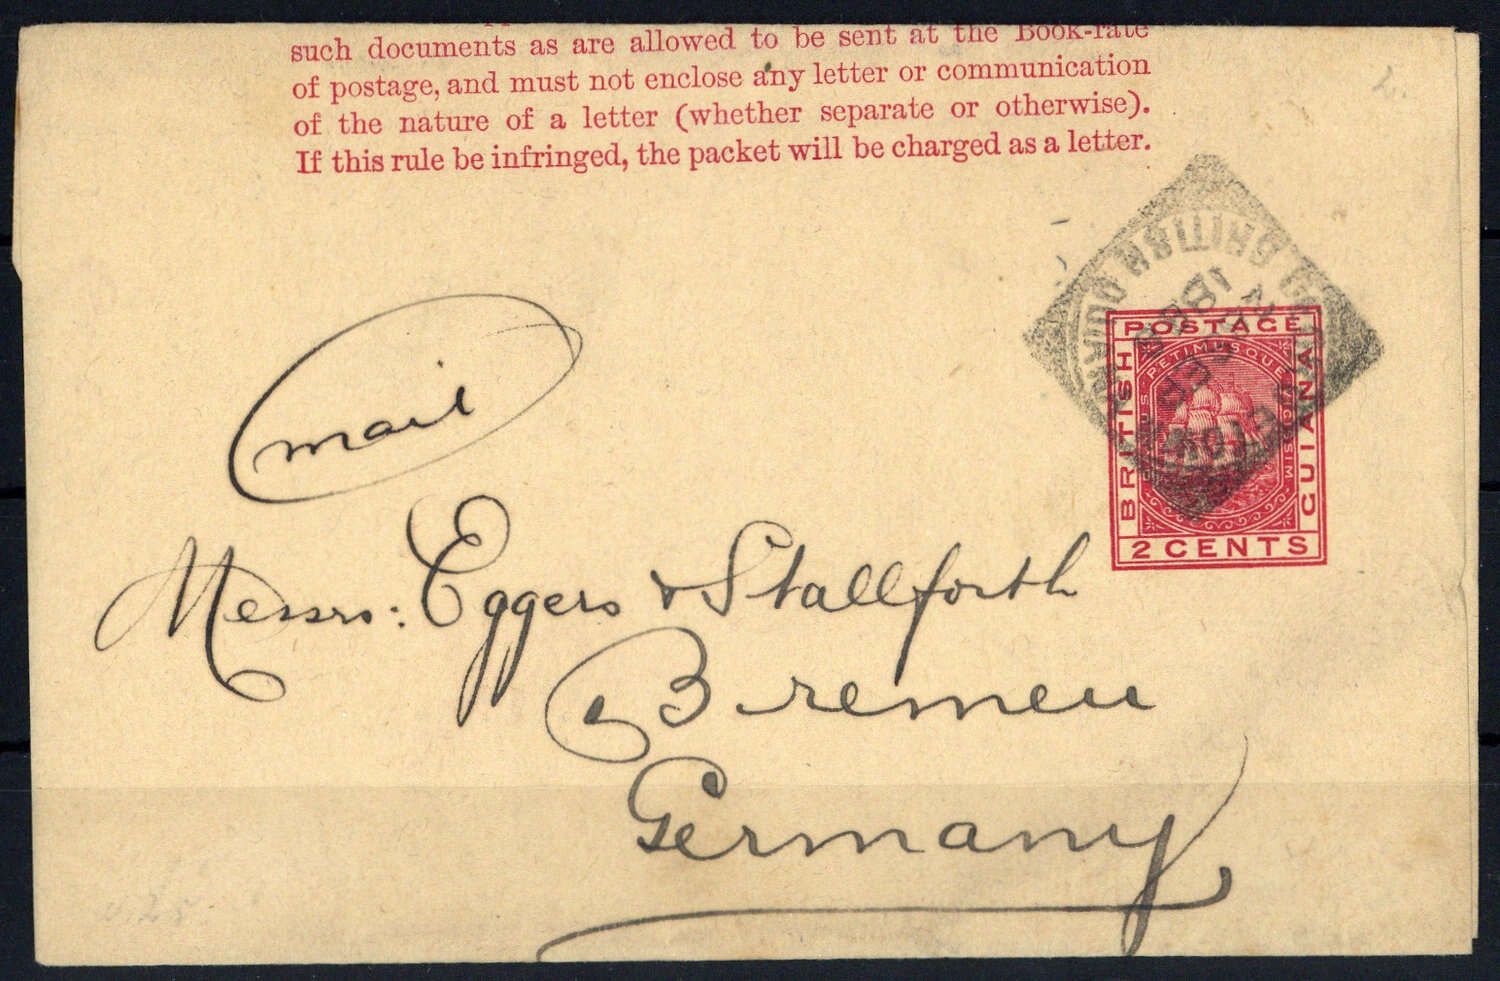 such documents as are allowed to be sent at the Book-rate
of postage, and must not enclose any letter or communication
of the nature of a letter (whether separate or otherwise).
If this rule be infringed, the packet will be charged as a letter.
BRITISH
POSTAGE
BRITISH
GUIANA
PETIMUSQUE
2 CENTS
mail
Messrs: Eggers & Stallforth
Bremen
Germany